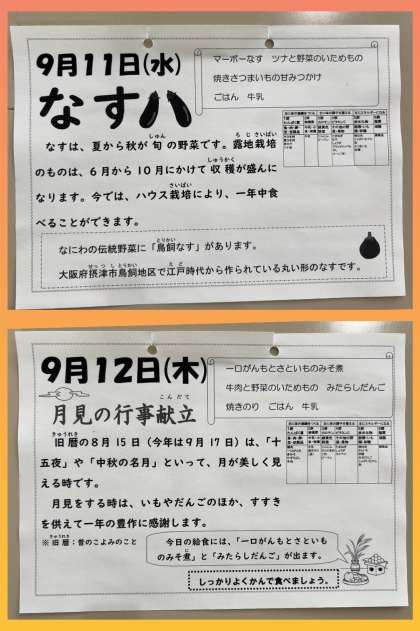 9月11日(水)
なす
マーボーなす ツナと野菜のいためもの
焼きさつまいもの甘みつかけ
ごはん 牛乳
なすは、夏から秋が旬の野菜です。露地栽培
のものは、6月から10月にかけて収穫が盛んに
なります。今では、ハウス栽培により、一年中食
べることができます。
なにわの伝統野菜に「鳥飼なす」があります。
大阪府摂津市鳥飼地区で江戸時代から作られている丸い形のなすです。
9月12日(木)
月見の行事献立
一口がんもとさといものみそ煮
牛肉と野菜のいためもの みたらしだんご
焼きのり ごはん 牛乳
旧暦の8月15日(今年は9月17日)は、「十
五夜」や「中秋の名月」といって、月が美しく見
える時です。
月見をする時は、いもやだんごのほか、すすき
を供えて一年の豊作に感謝します。
※旧暦:昔のこよみのこと
今日の給食には、「一口がんもとさといも
のみそ煮」と「みたらしだんご」が出ます。
しっかりよくかんで食べましょう。